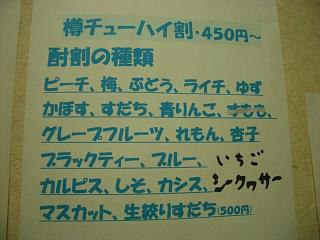 樽チューハイ割・450円～
酎割の種類
ピーチ、梅、ぶどう、ライチ、ゆず
かぼす、すだち、青りんご、すもも、
グレープフルーツ、れもん、杏子
ブラックティー、ブルー、いちご
カルピス、しそ、カシス、シークワサー
マスカット、生絞りすだち(500円)